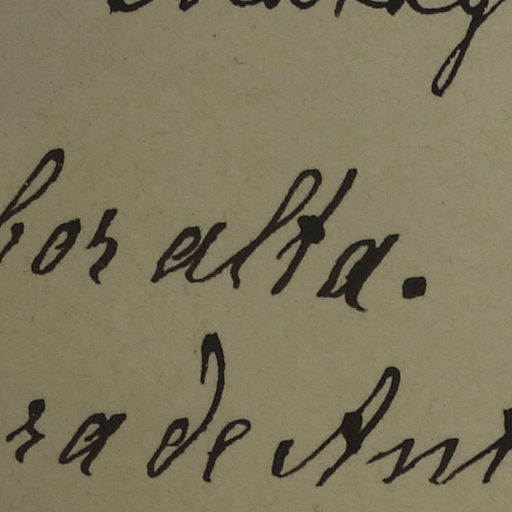 bor alta.
ra de Ant